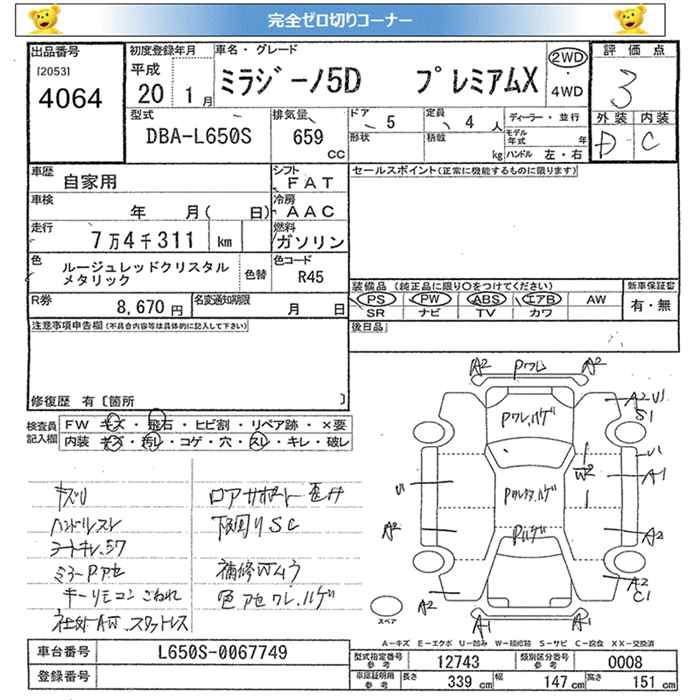 完全ゼロ切りコーナー
出品番号
[2053]
4064
初度登録年月
平成
20 1月
車名・グレード
ミラジーノ5D プレミアムX
2WD
・
4WD
評価点
3
外装 内装
D C
型式
DBA-L650S
排気量
659
CC
ドア
5
定員
4人
ディーラー・並行
形状
積載
kg
モデル年式 年
ハンドル 左・右
車歴
自家用
シフト
FAT
セールスポイント(正常に機能するものに限ります)
車検
年 月( 日)
冷房
AAC
走行
7万4千311 km
燃料
ガソリン
色
ルージュレッドクリスタル
メタリック
色替
色コード
R45
装備品 (純正品に限り○をつけてください)
PS PW ABS エアB AW
SR ナビ TV カワ
新車保証書
有・無
R券
8,670円
名変通知期限
月 日
後日品
注意事項申告欄(不具合内容等は具体的に記入して下さい)
修復歴 有〔箇所 〕
検査員
記入欄
FW キズ・飛石・ヒビ割・リペア跡・×要
内装 キズ・汚レ・コゲ・穴・スレ・キレ・破レ
キズU
ハンドルスレ
シートキレ、
ミラーPアセ
キーリモコンこわれ
社外AW、スタットレス
ロアサポート歪み
下回りSC
補修ムラ
色アセワレ、ハゲ
A2 Pワレ A2
Pワレ、ハゲ
A2 U1
S1
U1
W2
A1
U1
Pワレ、ハゲ
A2
A2
Pハゲ
A2
A2
C1
A1 A1
スペア
A-キズ E-エクボ U-凹み W-補修跡 S-サビ C-腐食 XX-交換済
車台番号
L650S-0067749
型式指定番号
参考
12743
類別区分番号
参考
0008
登録番号
車庫証明用
参考
長さ 339 cm
幅 147 cm
高さ 151 cm